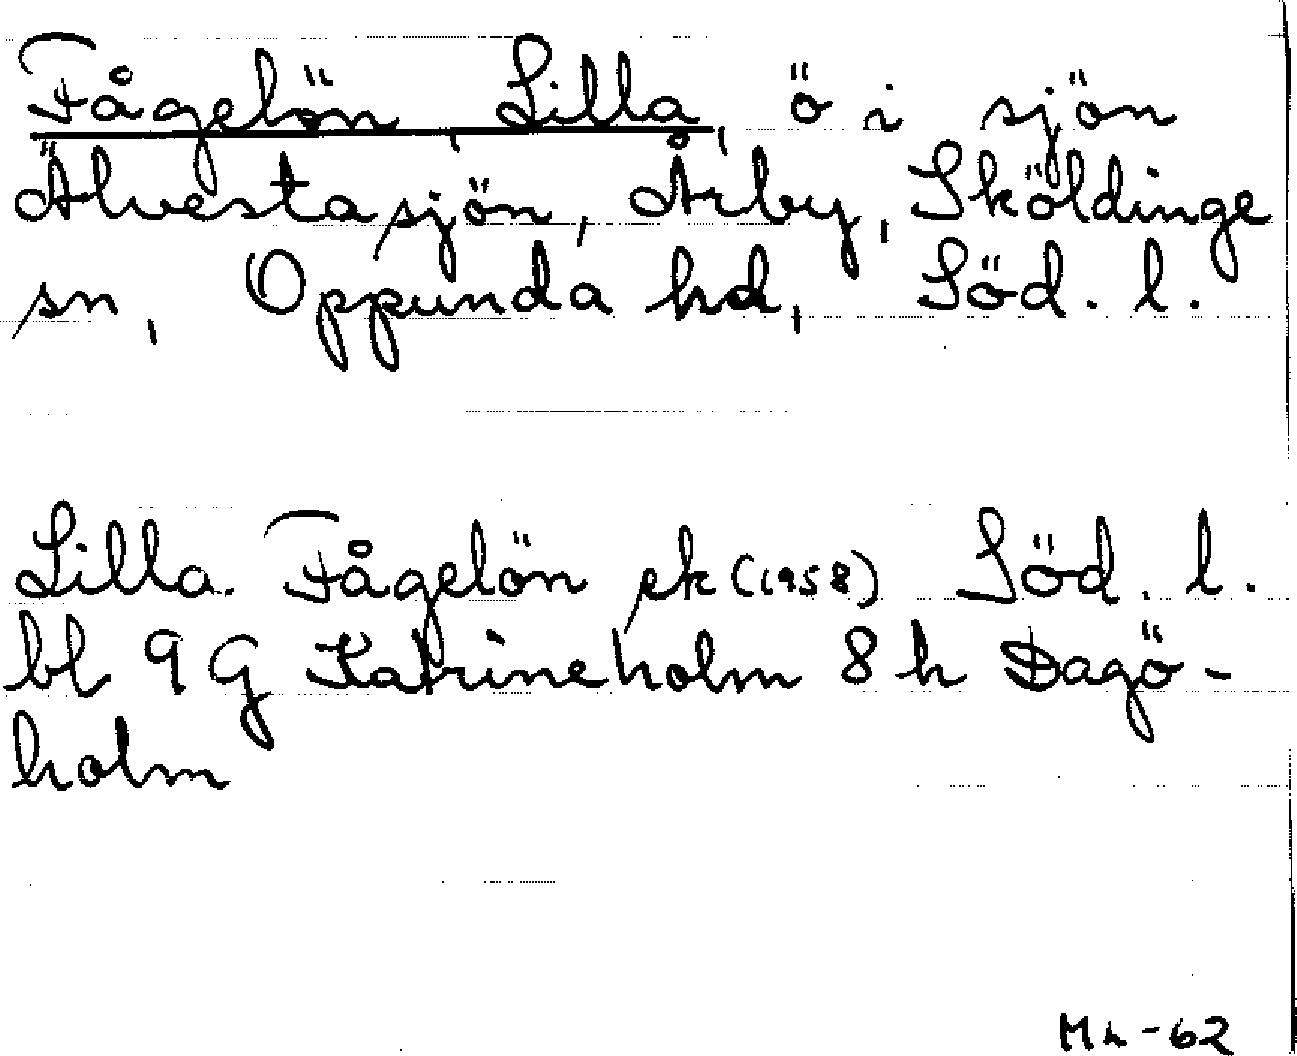 Fågelön, Lilla, ö i sjön
Älvestasjön, Årby, Sköldinge
sn, Oppunda hd, Söd. l.
Lilla Fågelön ek (1958) Söd. l.
bl 9 G Katrineholm 8 h Dagö-
holm
-62